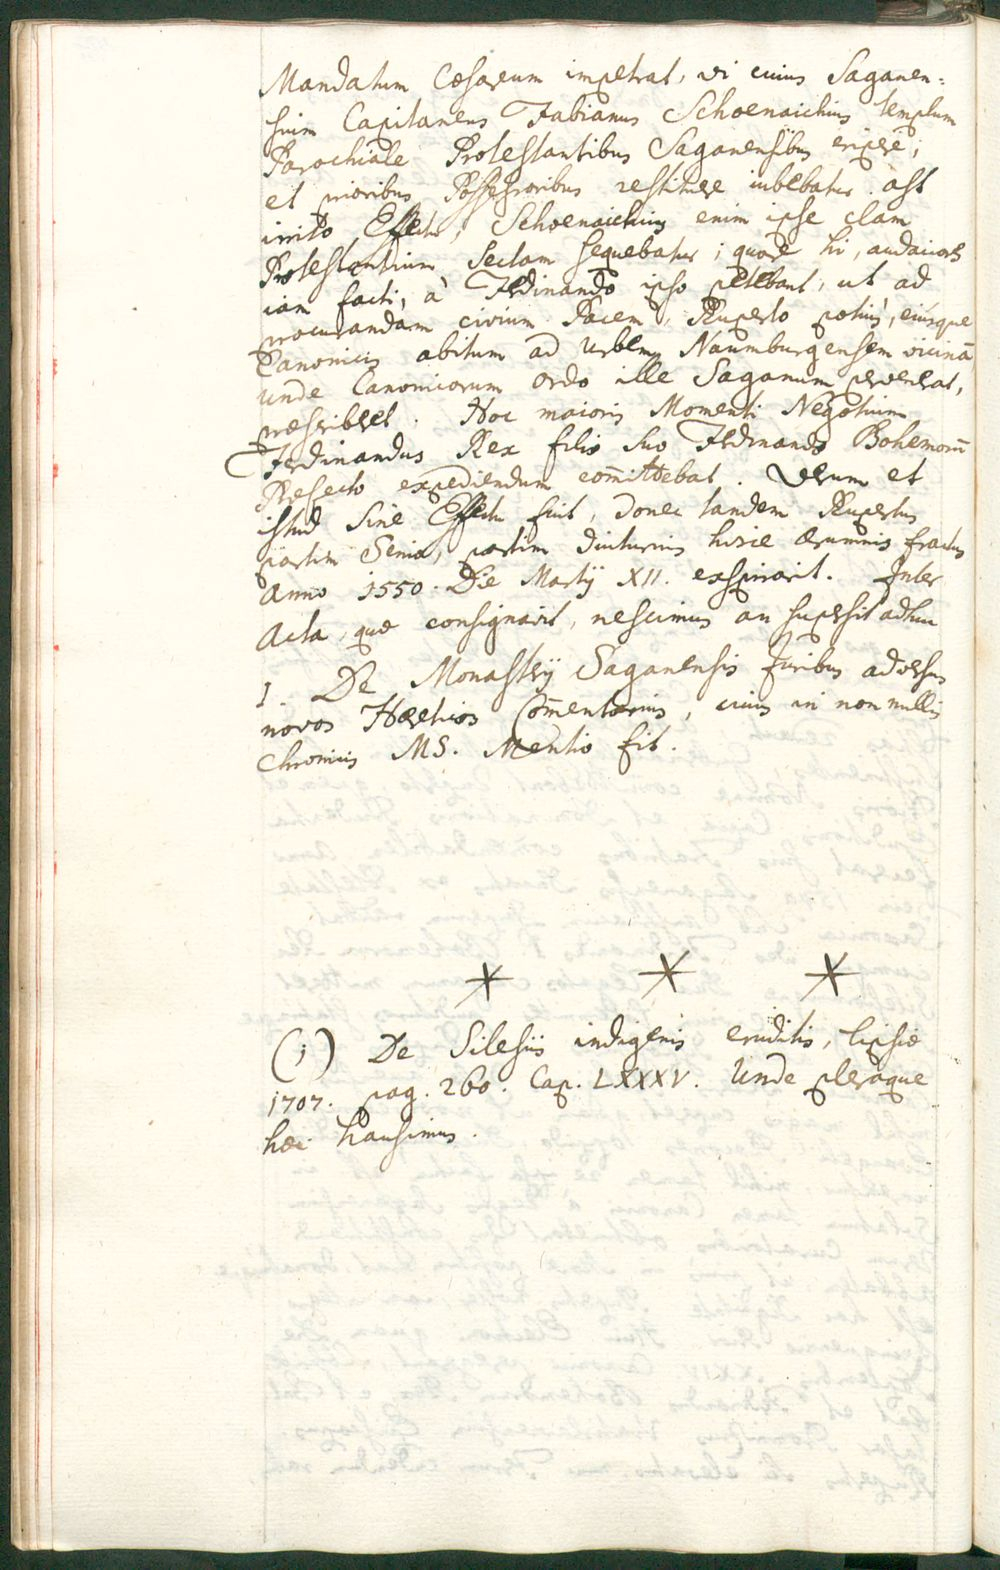 Mandatum Cæsareum impetrat, vi cuius Saganen=
sium Capitaneus Fabianus Schoenaichius templum
Parochiale Protestantibus Saganensibus eripere,
et prioribus Possessoribus restituere iubebatur. ast
irrito Effectu, Schoenaichius enim ipse clam
Protestantium Sectam sequebatur; quare hi, audaciores
iam facti, à Ferdinando ipso petebant, ut ad
procurandam civium Pacem, Ruperto potius, eiusque
Canonicis abitum ad Urbem Naumburgensem vicinã
unde Canonicorum Ordo ille Saganum pervenerat,
præscriberet. Hoc maioris Momenti Negotium
Ferdinandus Rex filio suo Ferdinando Bohemorũ
Præfecto expediendum com̃ittebat. Verum et
istud sine Effectu fuit, donec tandem Rupertus
partim Senio, partim diuturnis hisce ærumnis fractus
Anno 1550. Die Martij XII. exspirarit. Inter
Acta, quæ consignarit, nescimus an supersit adhuc
1 De Monasterij Saganensis Juribus adversus
novos Hæreticos Com̃entarius, cuius in non nullis
Chronicis MS. Mentio fit.
* * *
(i) De Silesiis indigenis eruditis, Lipsiæ
1707. pag. 260. Cap. LXXXV. Unde pleraque
hæc hausimus.